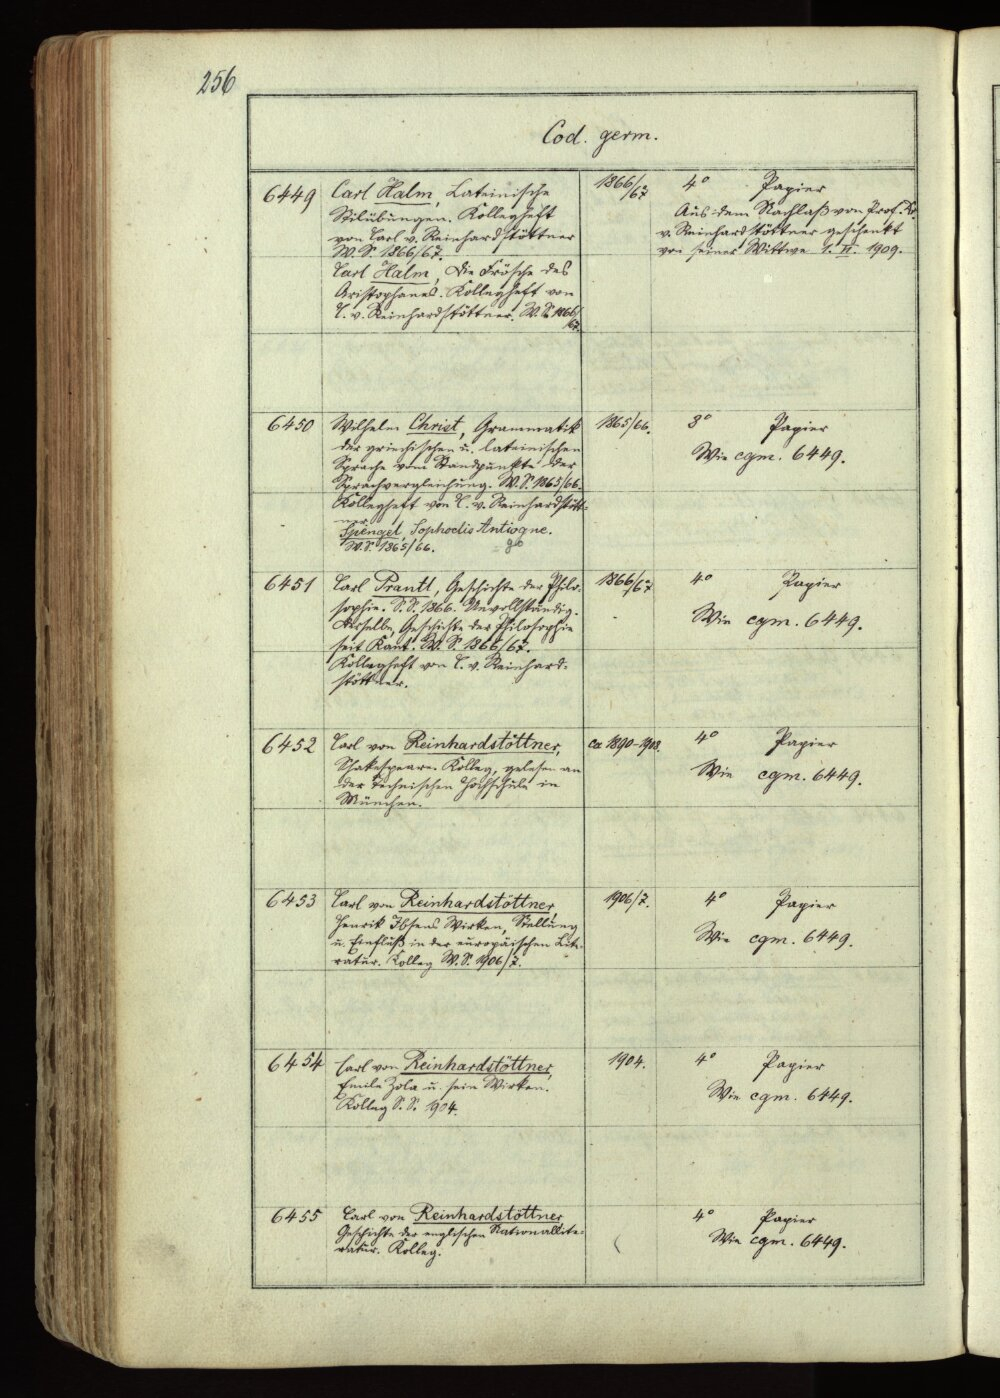 256
Cod. germ.
6449 Carl Halm, Lateinische 1866/67 4° Papier
Stilübungen. Kollegheft Aus dem Nachlaß von Prof. Dr.
von Carl v. Reinhardstöttner v. Reinhardstöttner geschenkt
W.S. 1866/67. von seiner Wittwe 1. II. 1909.
Carl Halm, Die Frösche des
Aristophanes. Kollegheft von
C. v. Reinhardstöttner. W.S. 1866/
67.
6450 Wilhelm Christ, Grammatik 1865/66. 8° Papier
der griechischen u. lateinischen
Sprache vom Standpunkte der Wie cgm. 6449.
Sprachvergleichung. W.S. 1865/66.
Kollegheft von C. v. Reinhardstött-
ner.
Spengel, Sophoclis Antiogne.
W.S. 1865/66. go
6451 Carl Prantl, Geschichte der Philo- 1866/67 4° Papier
sophie. S.S. 1866. Unvollständig.
Derselbe, Geschichte der Philosophie Wie cgm. 6449.
seit Kant. W.S. 1866/67.
Kollegheft von C. v. Reinhard-
stöttner.
6452 Carl von Reinhardstöttner, ca 1890-1908. 4° Papier
Shakespeare. Kolleg, gelesen an Wie cgm. 6449.
der Technischen Hochschule in
München.
6453 Carl von Reinhardstöttner, 1906/7. 4° Papier
Henrik Ibsens Wirken, Stellung
u. Einfluß in der europäischen Lite- Wie cgm. 6449.
ratur. Kolleg W.S. 1906/7.
6454 Carl von Reinhardstöttner, 1904. 4° Papier
Emile Zola u. sein Wirken.
Kolleg S.S. 1904. Wie cgm. 6449.
6455 Carl von Reinhardstöttner, 4° Papier
Geschichte der englischen Nationallite- Wie cgm. 6449.
ratur. Kolleg.